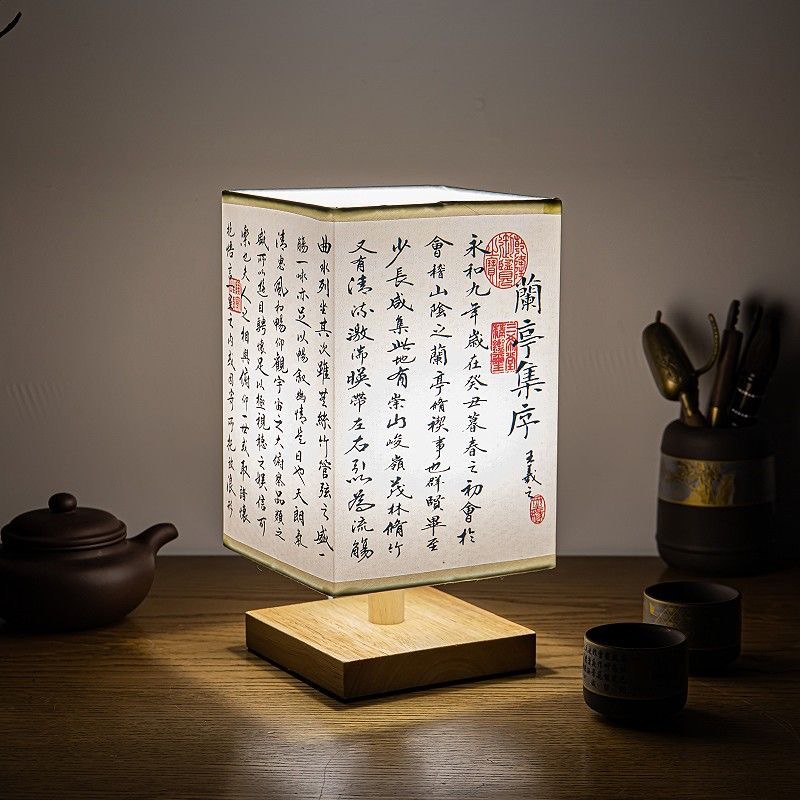 蘭亭集序
王羲之
乾隆御覽之寶
三希堂精鑑璽
永和九年歲在癸丑暮春之初會於
會稽山陰之蘭亭脩禊事也群賢畢至
少長咸集此地有崇山峻嶺茂林脩竹
又有清流激湍暎帶左右引以為流觴
曲水列坐其次雖無絲竹管弦之盛一
觴一詠亦足以暢叙幽情是日也天朗氣
清惠風和暢仰觀宇宙之大俯察品類之
盛所以遊目騁懷足以極視聽之娛信可
樂也夫人之相與俯仰一世或取諸懷
抱悟言一室之內或因寄所託放浪形